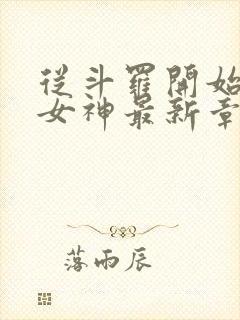 從斗羅開始
女神最新章
落雨辰